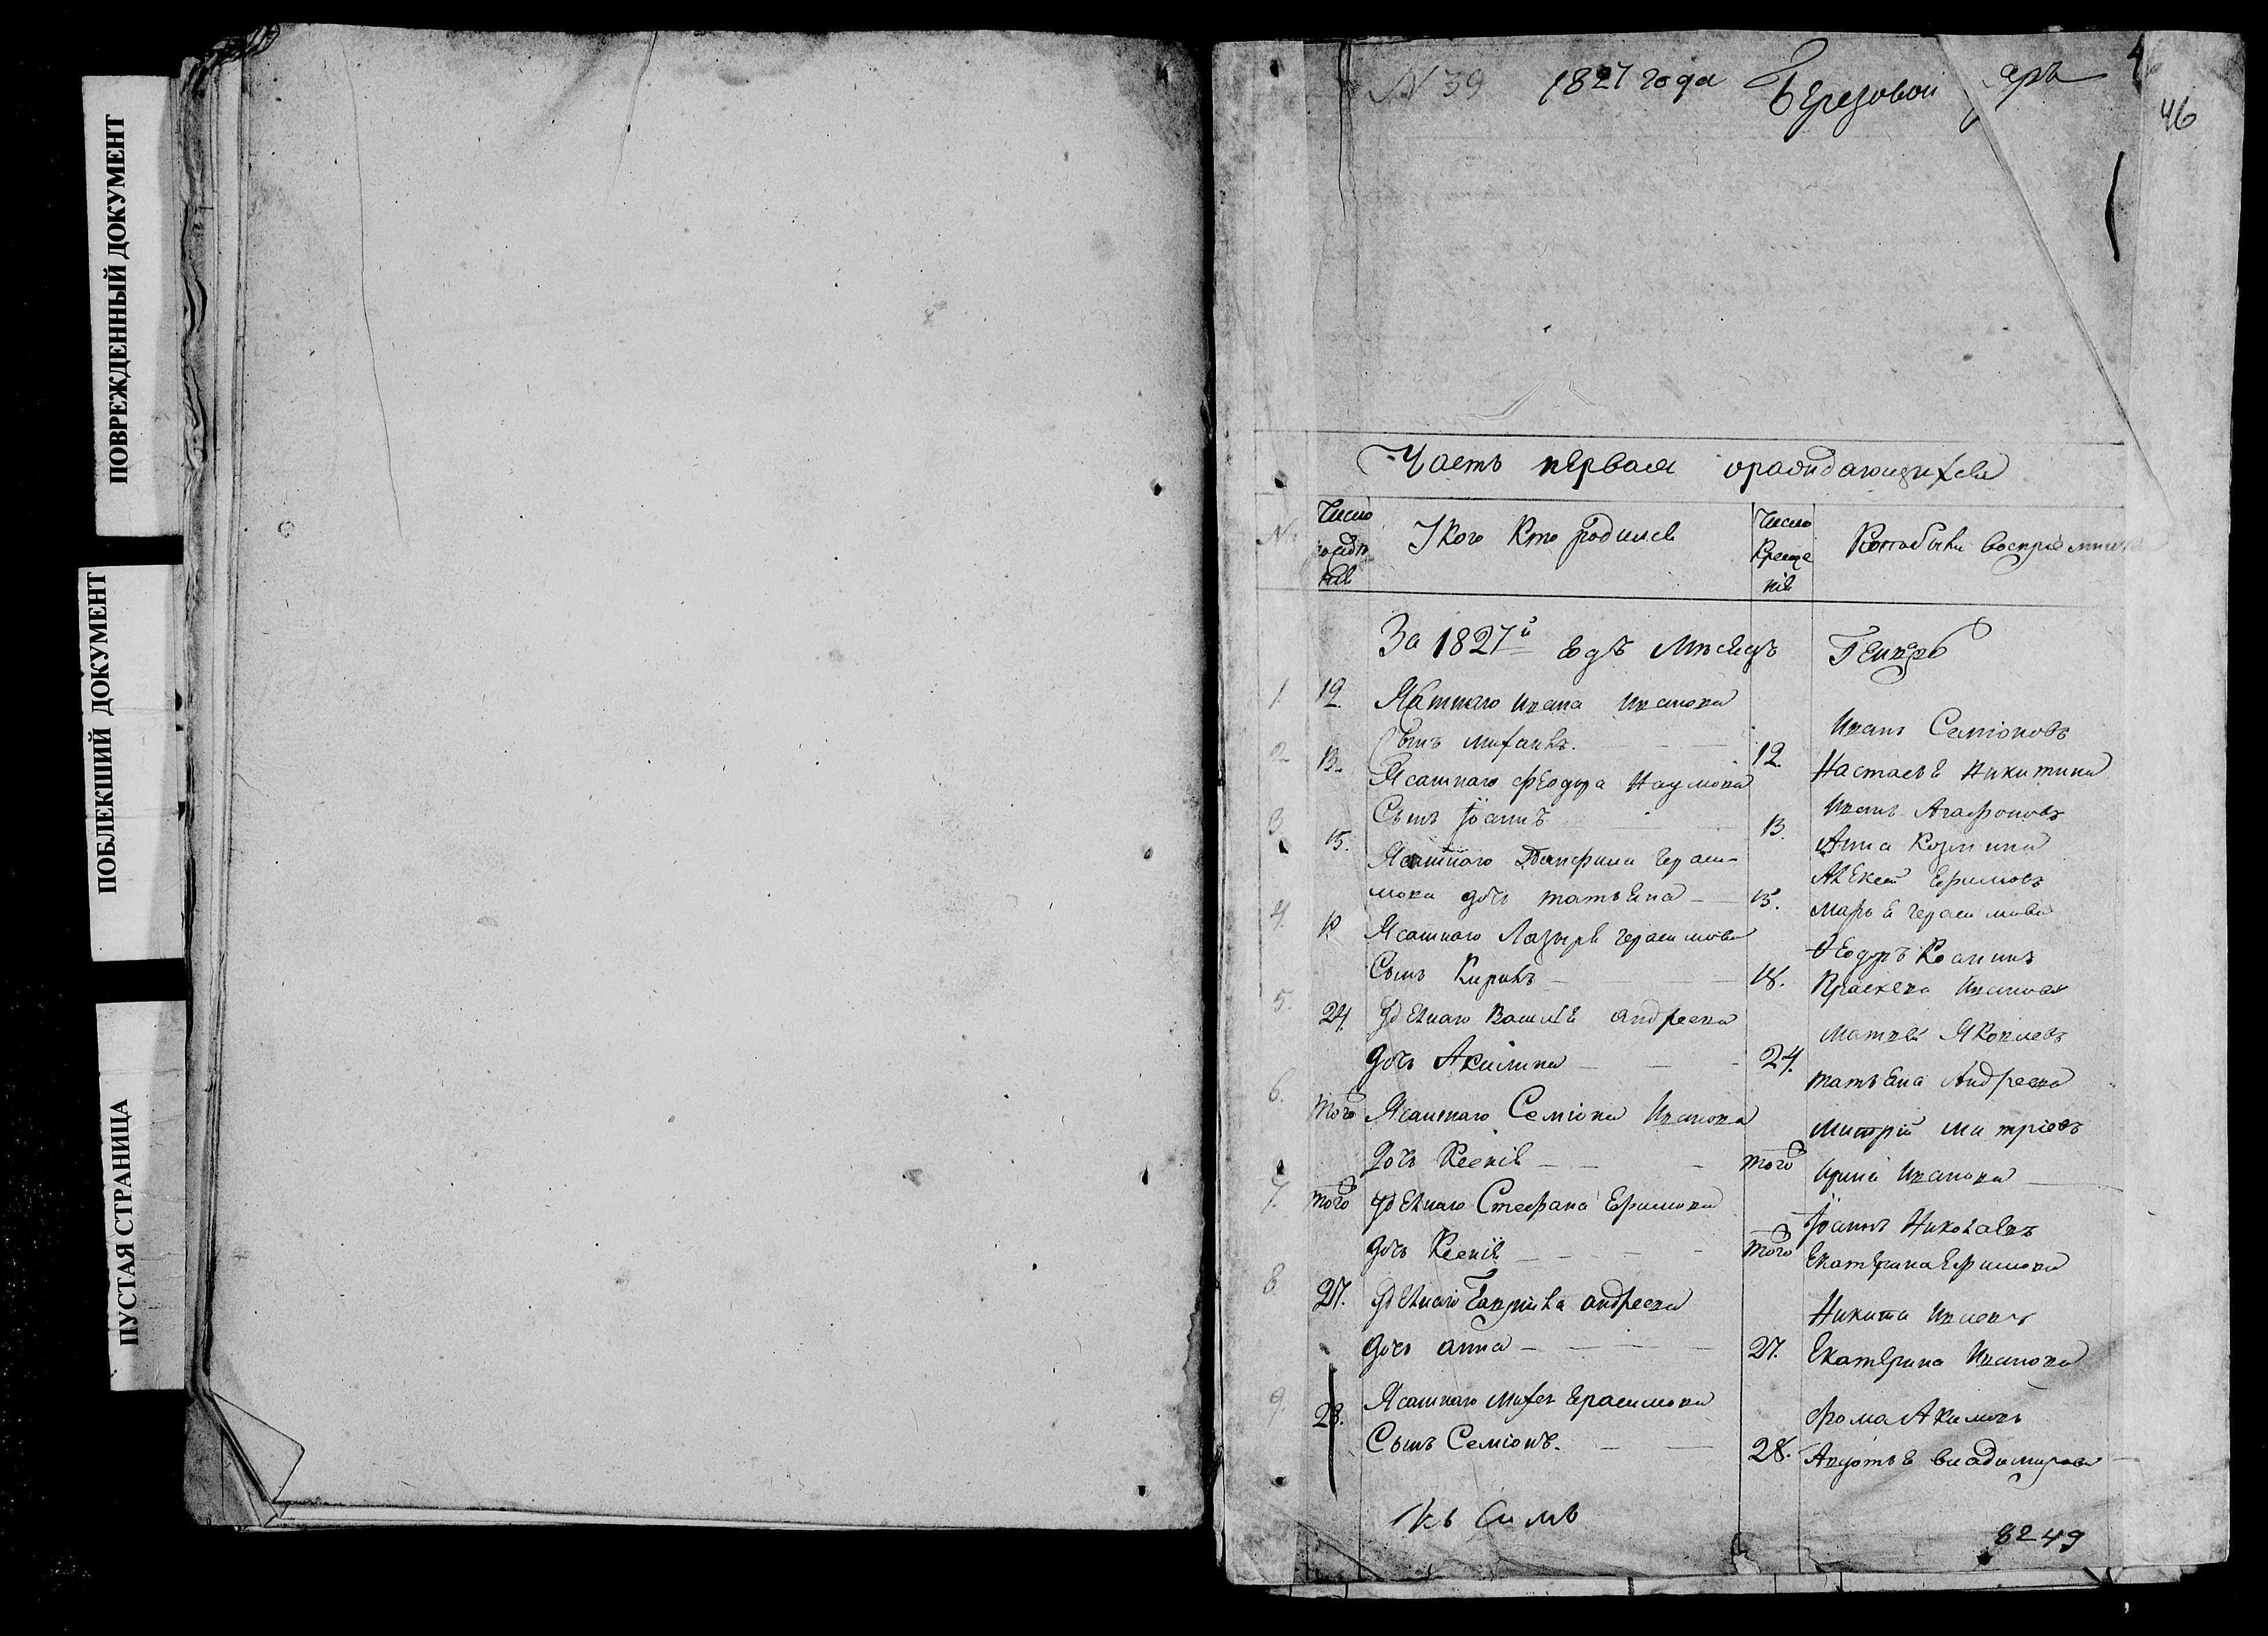 ПОВРЕЖДЕННЫЙ ДОКУМЕНТ
ПОБЛЕКШИЙ ДОКУМЕНТ
ПУСТАЯ СТРАНИЦА
N 39 1827 года Березовой яръ
46
Часть первая
№ Число рожде нія У кого кто родился Число креще нія
За 1827й годъ Месецъ Генварь
1. 12. Ясашнаго Ивана Иванова
Сынъ Михаилъ. 12. Иванъ Семіоновъ
Настасья Никитина
2. 13. Ясашнаго Феодора Наумова
Сынъ Іоаннъ 13. Иванъ Агафоновъ
Анна Козмина
3. 15. Ясашнаго Гераси-
мова дочь татьяна 15. Алексей Ефимовъ
Марья Герасимова
4. Ясашнаго Лазыря Герасимова
Сынъ Кирилъ 18. Феодоръ
Праскева Иванова
5. 24. Удельнаго Василья андреева
дочь Акилина 24. Матвей Яковлевъ
татьяна Андреева
6. того Ясашнаго Семіона Иванова
Дочь Ксенія того Митрій Митріевъ
Ирина Иванова
7. того Удельнаго Стефана Ефимова
дочь Ксенія того Іоаннъ Николаевъ
Екатерина Ефимова
8. 27. Удельнаго Гаврила андреева
дочь анна 27. Никита
Екатерина Иванова
9. 28. Ясашнаго Михея Герасимова
Сынъ Семіонъ. 28. Фома Акимовъ
Авдотья владимирова
Къ Симъ
8249